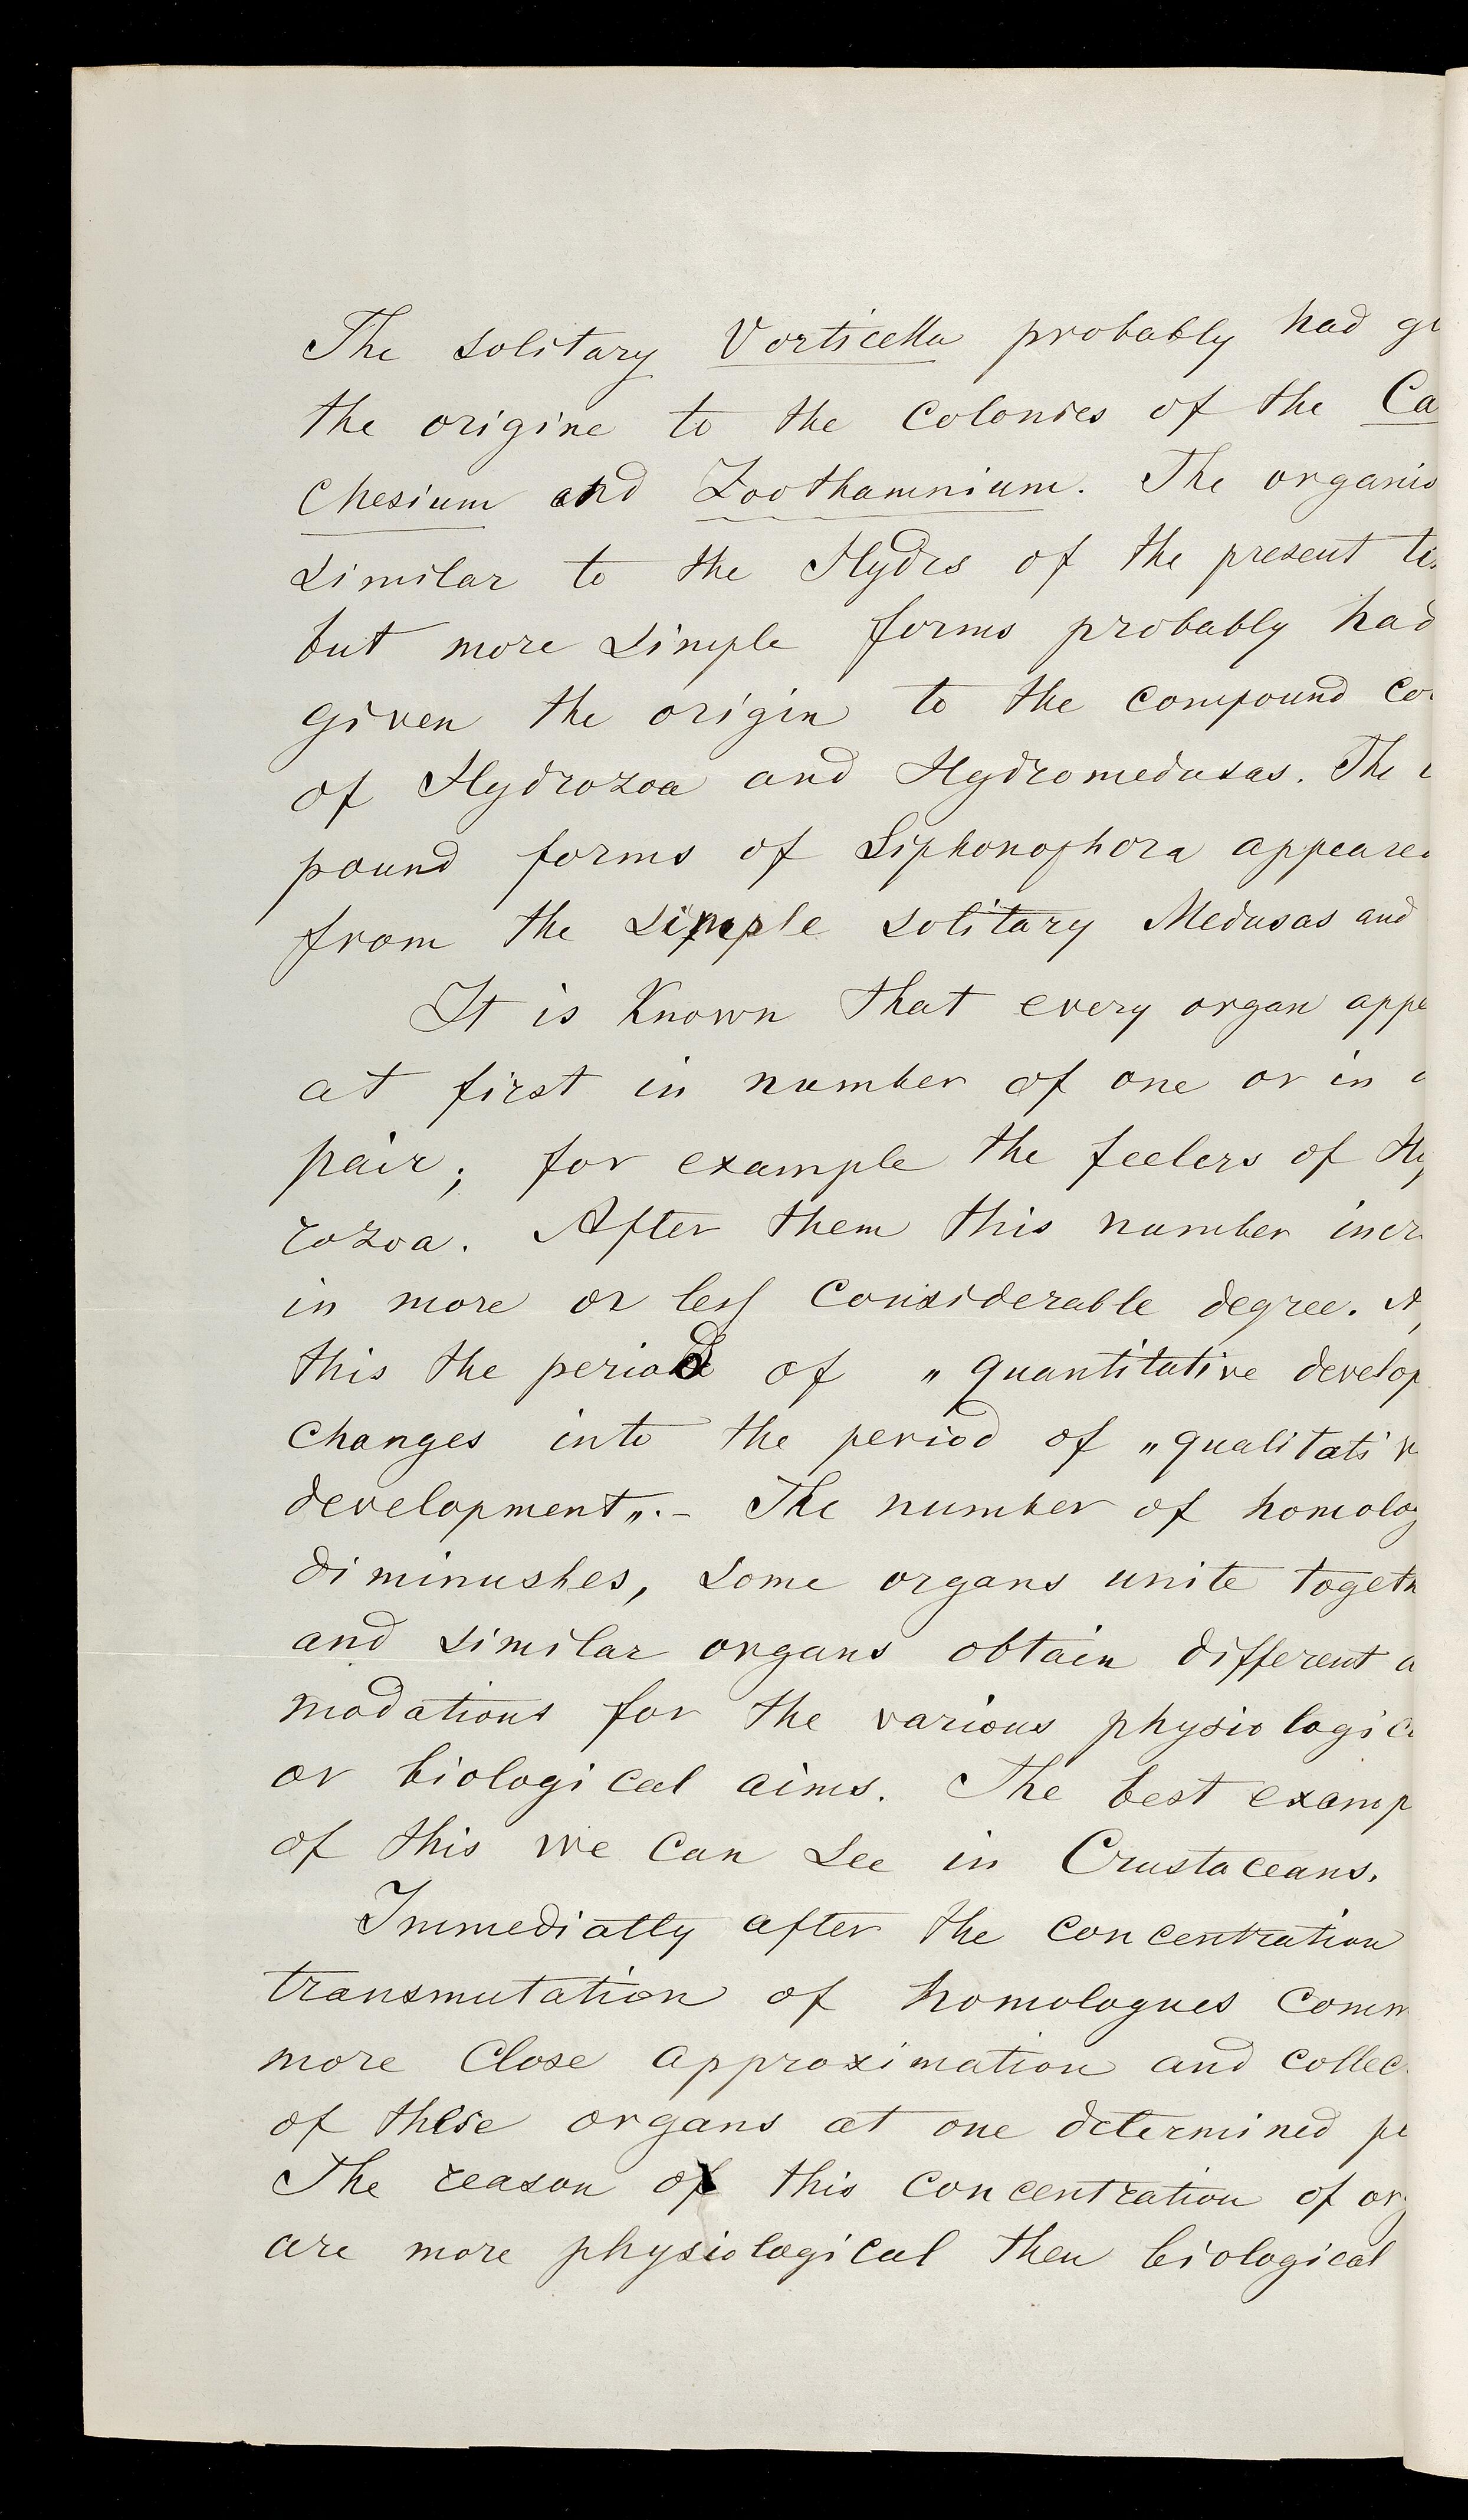 The solitary Vorticella probably had gi
the origine to the Colonies of the Ca
chesium and Zoothamnium. The organis
similar to the Hydrs of the present ti
but more simple forms probably had
given the origin to the compound co
of Hydrozoa and Hydromedusas. The
pound forms of Siphonophora appeared
from the simple solitary Medusas and
It is Known that every organ appe
at first in number of one or in a
pair; for example the feelers of Hy
rozoa. After them this number incr
in more or less Considerable degree. A
this the period of „quantitative develop
Changes into the period of „qualitativ
development„.- The number of homolog
diminushes, some organs unite togeth
and similar organs obtain different a
modations for the various physiologic
or biological aims. The best examp
of this we Can see in Crustaceans.
Immediatly after the Concentration
transmutation of homologues Comm
more Close approximation and Collec
of these organs at one determined
The reason of this Concentration of org
are more physiological then biological